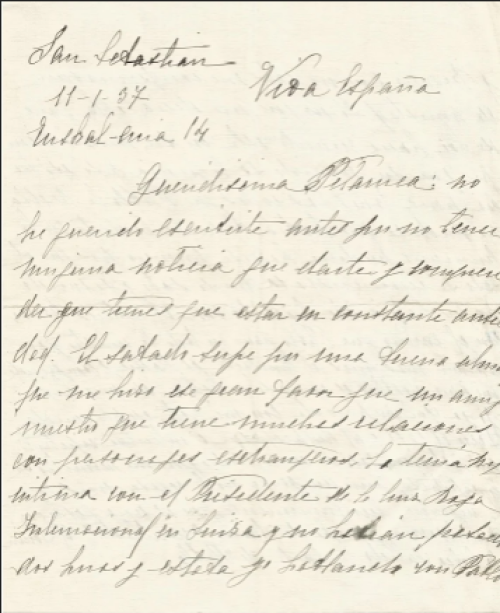 San Sebastian
Viva España
11-1-37
Euskal-erria 14
Queridisima : no
he querido escribirte antes por no tener
ninguna noticia que darte y compren
der que tienes que estar en constante ansie
dad. El sabado supe por una buena alma
que me hizo ese gran favor que un amig
nuestro que tiene muchas relaciones
con personajes extranjeros, la tenia muy
intima con el Presidente de la Cruz Roja
Internacional en Suiza y no habian pasado
dos horas y estaba ya hablando con